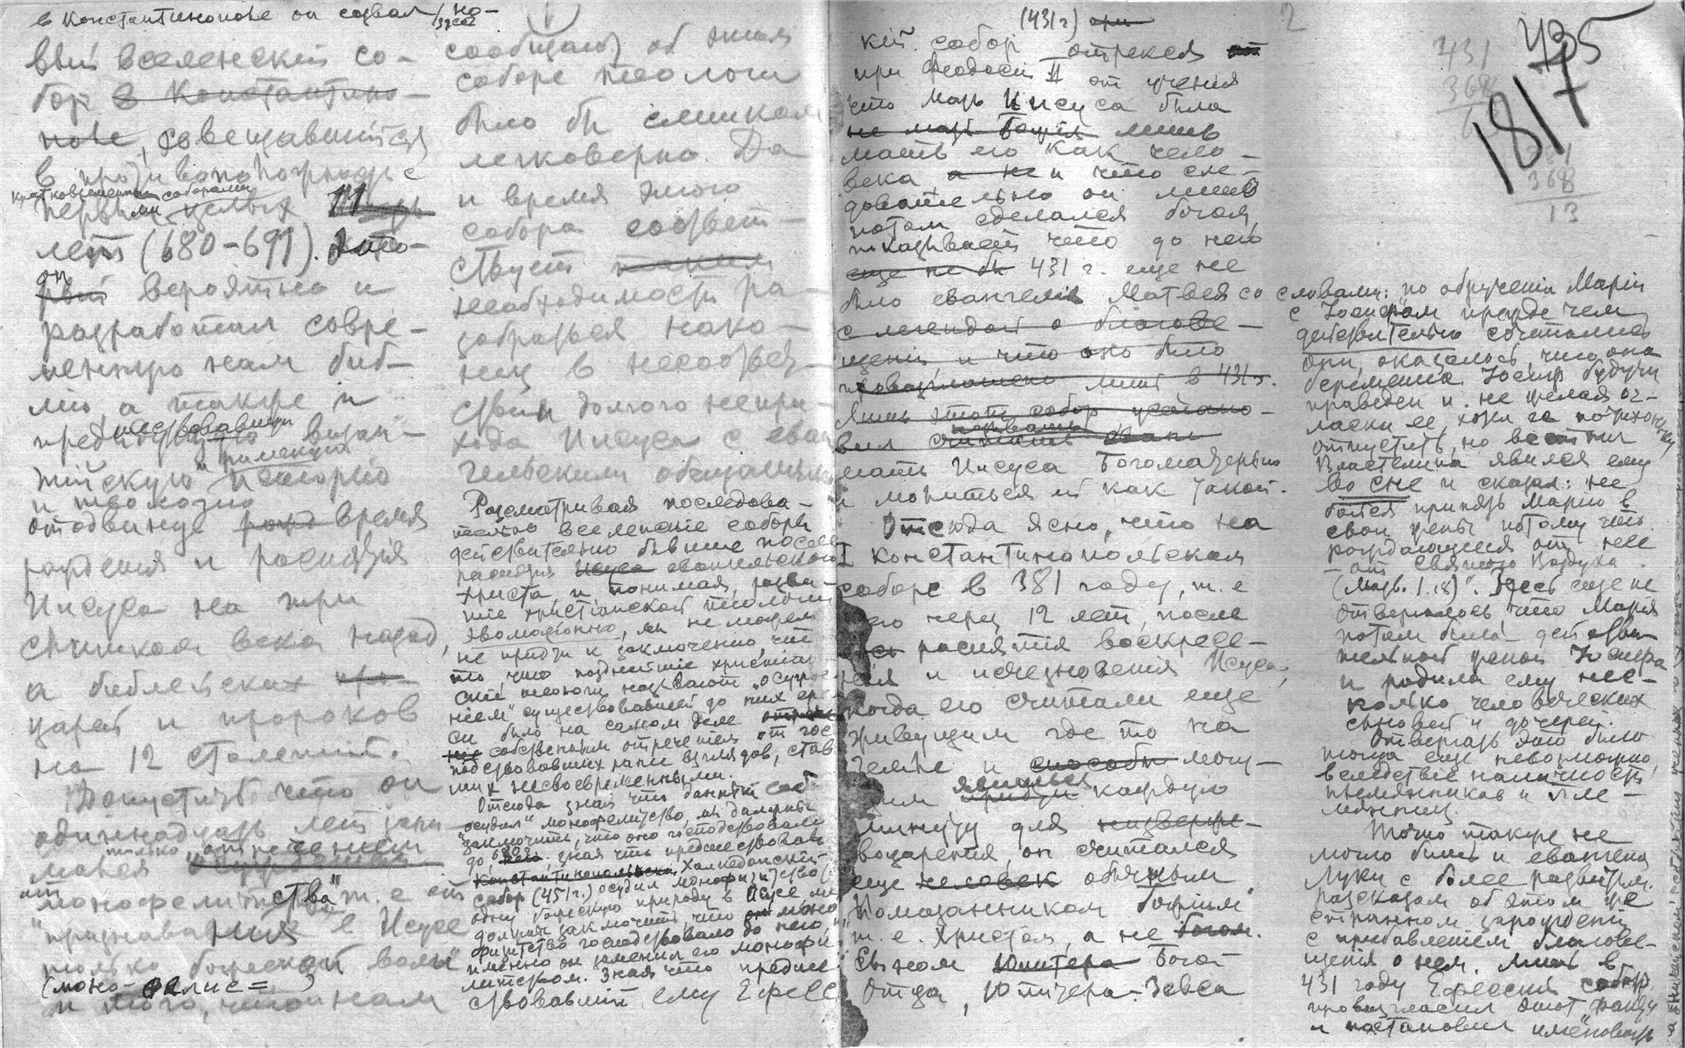 в Константинополе он созвал но-
вый вселенский со-
бор в Константино-
поле, совещавшийся
в противоположность
кратковременным соборам
первым целых 11
лет (680-691). Зато
он вероятно и
разработал совре-
менную нам биб-
лию, а также и
предшествовавшую визан-
тийскую историю
римскую
отодвинув время
рождения и распятія
Иисуса на три
слишком века назад,
а библейских
царей и пророков
на 12 столетий.
Допустить что он
одиннадцать лет зани-
мался только отречением
от монофелитства т. е. от
"признаванія в Исусе
только божеской воли"
(моно- фелис = )
и того, что нам
сообщают об этом
соборе теологи
было бы слишком
легковерно. Да
и время этого
собора соответ-
ствует
необходимости ра-
зобраться нако-
нец в несоответ-
ствии долгого непри-
хода Иисуса с еван-
гельскими обещаниями
Рассматривая последова-
тельно вселенские соборы
действительно бывшие после
распятия Исуса евангельского
Христа и понимая разви-
тие христіанской теологіи
эволюционно, мы не можем
не придти к заключению, что
то, что позднейшие христіан-
ские теологи называют "осужде-
нием" существовавшей до них ере-
си было на самом деле
собственным отречением от гос-
подствовавших ранее взглядов, став-
ших несвоевременными.
Отсюда зная что данный соб.
"осудил" монофелитство, мы должны
заключить, что оно господствовало
до него. Зная что предшествовавш
Константинопольский Халкедонский
собор (451 г.) осудил монофизитство
одну божескую природу в Исусе мы
должны заключить что моно-
физитство господствовало до него,
именно он заменил его монофе-
литством. Зная что предше-
ствовавший ему Ефесс-
(431 г)
кій собор отрекся
при Феодосіи II от учения
что мать Иисуса была
не мать Божія лишь
мать его как чело-
века а не и что сле-
довательно он лишь
потом сделался богом
показывает что до него
еще не бы 431 г. еще не
было евангелія Матвея со словами: "по обручении Маріи
с легендой о благове-
щеніи и что оно было
провозглашено лишь в 431 г.
Лишь этот собор устано-
вил считать называть
мать Иисуса Богоматерью
и молиться ей как такой.
Отсюда ясно, что на
I Константинопольском
соборе в 381 году, т. е
через 12 лет после
распятія воскресе-
нія и исчезновения Исуса,
когда его считали еще
живущим где то на
земле и способн могу-
щим явиться каждую
минуту для низверже-
воцарения, он считался
еще человек обычным
Помазанником божіим
т. е. Христом, а не богом.
Сыном Юпитера Бога
Отца, Юпитера-Зевса
2
435
1817
431
368
6
381
368
13
с Іосифом прежде чем
действительно сочетались
они, оказалось, что она
беременна. Іосиф будучи
праведен и не желая ог-
ласки ее, хотел ее потихоньку
отпустить, но вестник
Властелина явился ему
во сне и сказал: не
бойся принять Марию в
свои жены потому что
рождающееся от нее
от Святого Воздуха
(Матв. 1.18)". Здесь еще не
отвергалось, что Мария
потом была действи-
тельной женой Іосифа
и родила ему нес-
колько человеческих
сыновей и дочерей.
Отвергать это было
тогда еще невозможно,
вследствие наличности
племянников и пле-
мянниц.
Точно также не
могло быть и евангелия
Луки с более развитым
рассказом об этом же
странном зарождении
с прибавлением благове-
щения о нем. Лишь в
431 году Ефесский собор
провозгласил этот факт
и постановил именовать